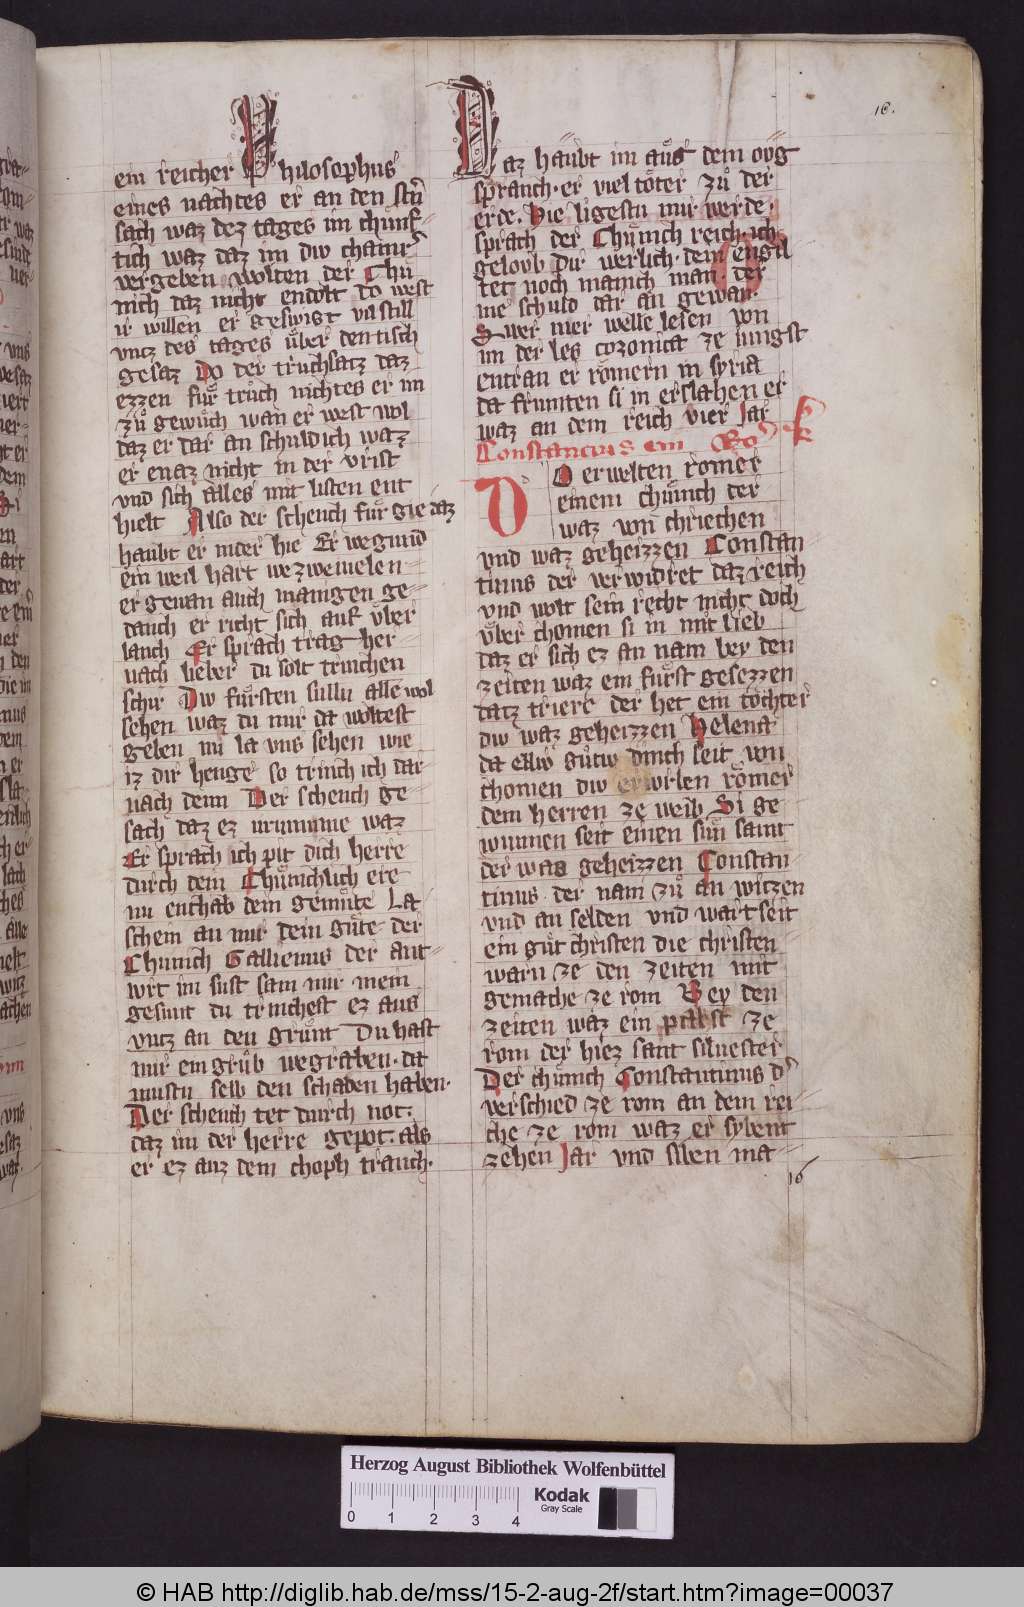 16.
ein reicher Philosophus
eines nachtes er an den stern
sach waz dez tages im chunf-
tich waz daz im diw chamer
vergeben wolten der Chu
nich daz nicht endolt do west
ir willen er geswigt vil still
vncz des tages über den tisch
gesaz Do der truchsatz daz
ezzen für trůch nichtes er im
zů gewůch wan er west wol
daz er dar an schuldich waz
er enaz nicht in der vrist
vnd sich alles mit listen ent
hielt Also der schench für gie daz
haubt er nider hie Er wegund
ein weil hart we zweiuelen
er gewan auch manigen ge-
danch er richt sich auf über
lanch Er sprach trag her
nach lieber du solt trinchen
schir Diw fürsten sulln alle wol
sehen waz du mir da woltest
geben nu la vns sehen wie
iz dir henge so trinch ich dar
nach denn Der schench ge
sach daz ez vrumme waz
Er sprach ich pit dich herre
durch dein Chünichlich ere
nu enthab dein gemüte La
schein an mir dein güte der
Chunich Gallienus der ant-
wrt im sust sam mir mein
gesunt du trinchest ez aus
vncz an den grunt Du hast
mir ein grůb wegraben. da
mustu selb den schaden haben.
Der schench tet durch not.
daz im der herre gepot. als
er ez auz dem choph tranch.
Daz haubt im aus dem oug
spranch. er viel töter zů der
erde. Hie ligestu mir werde.
sprach der Chünich reich. ich
geloub dir werlich. dem engil
tet noch manich man. der
nie schuld dar an gewan.
Swer mer welle lesen von
im der les cozonica ze iungst
entran er römern in syria
da frumten si in erslahen er
waz an dem reich vier Jar
Constancius ein Rö
k
Do erwelten romer
einem chünich der
waz von chriechen
vnd waz geheizzen Constan
tinus der verwidret daz reich
vnd wolt sein recht nicht doch
über chomen si in mit lieb
daz er sich ez an nam bey den
zeiten waz ein fürst gesezzen
datz triere der het ein tochter
diw waz geheizzen Helena
da elliw gůtiw dinch seit von
chomen diw erwirben römer
dem herren ze weib Si ge
wunnen seit einen sun samt
der was geheizzen Constan
tinus der nam zů an witzen
vnd an selden vnd wart seit
ein gůt christen die christen
warn ze den zeiten mit
gemache ze rom Bey den
zeiten waz ein pabst ze
rom der hiez sant siluester
Der chünich Constantinus d
verschied ze rom an dem rei
che ze rom waz er sybent
zehen Jar vnd siben ma-
16
Herzog August Bibliothek Wolfenbüttel
Kodak
Gray Scale
0 1 2 3 4
© HAB http://diglib.hab.de/mss/15-2-aug-2f/start.htm?image=00037